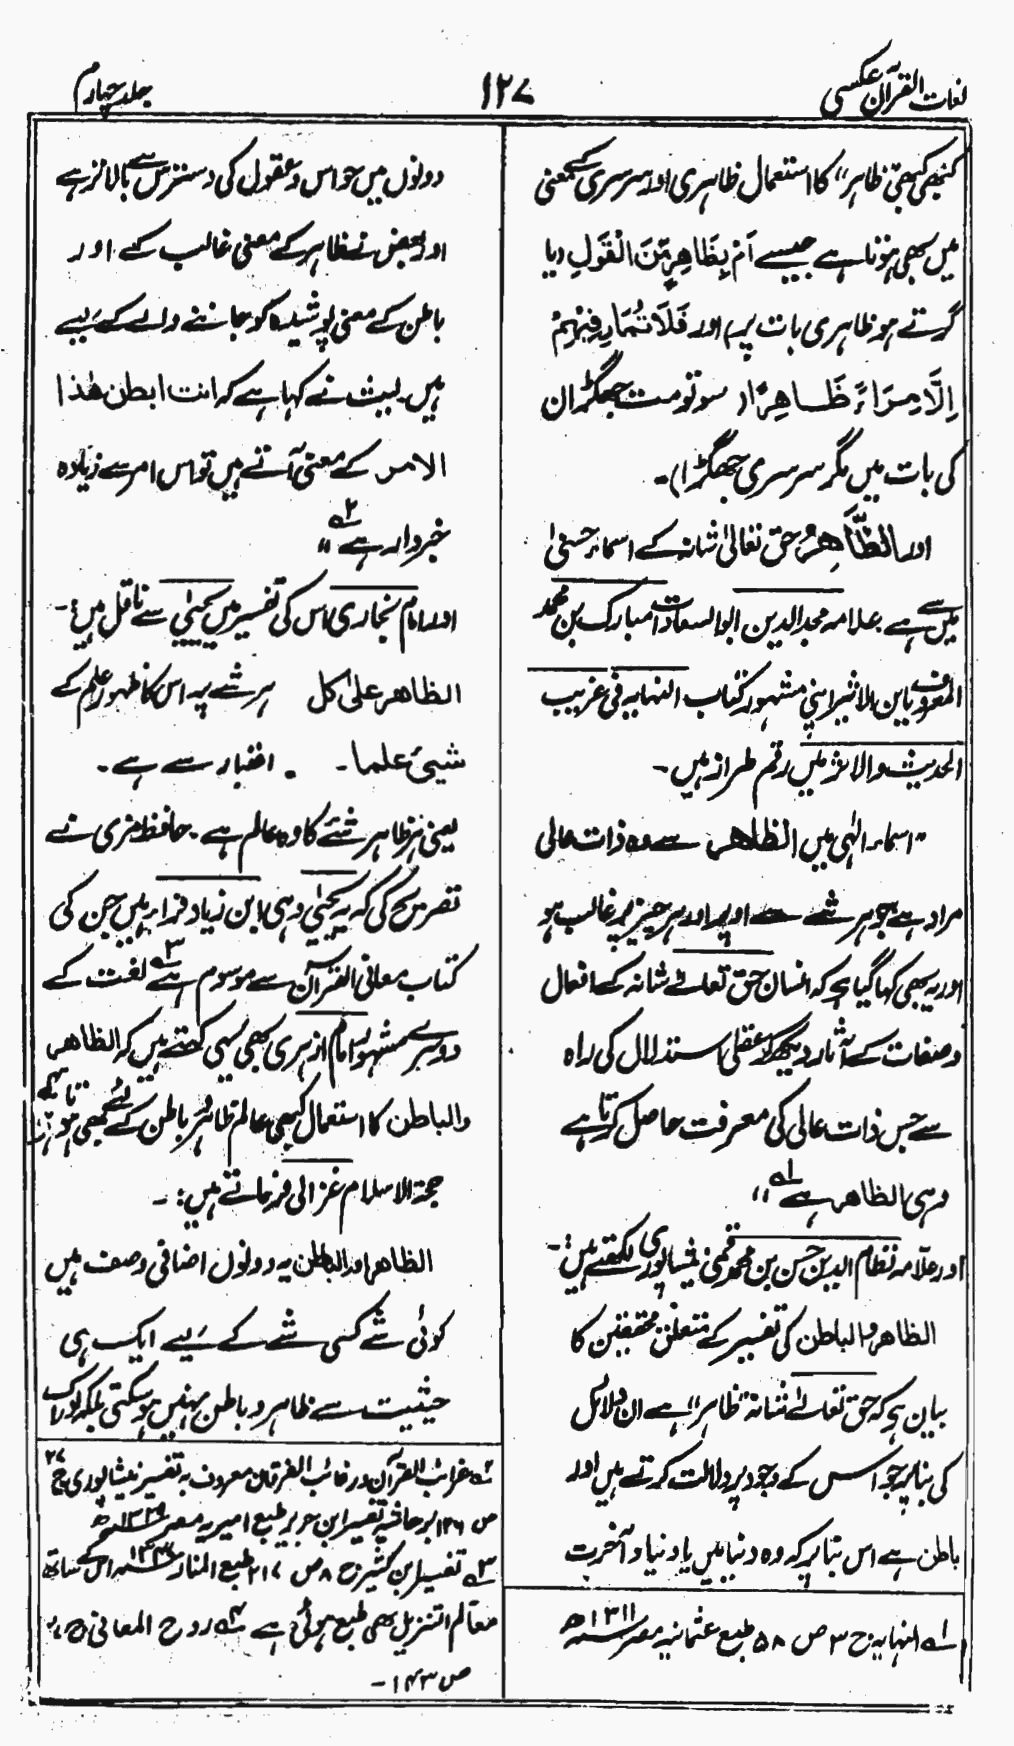 لغات القرآن عکسی
۱۲۷
جلد چہارم
کبھی کبھی ظاہر" کا استعمال ظاہری اور سرسری کے معنی
میں بھی ہوتا ہے جیسے اَمْ بِظَاهِرٍ مِّنَ الْقَوْلِ دیا
کرتے ہو ظاہری بات پر، اور فَلَا تُمَارِ فِيْهِمْ
اِلَّا مِرَاءً ظَاهِرًا ر سو تو مت جھگڑ ان
کی بات میں مگر سرسری جھگڑا)۔
اور الظَّاهِرُ حق تعالیٰ شانہ کے اسماء حسنیٰ
میں سے ہے علامہ مجد الدین ابوالسعادات مبارک بن محمد
المعروف بابن الاثیر اپنی مشہور کتاب النہایہ فی غریب
الحدیث والاثر میں رقم طراز ہیں۔
"اسماء الٰہی میں الظاهر سے وہ ذات عالی
مراد ہے جو ہر شے سے اوپر اور ہر چیز پر غالب ہو
اور یہ بھی کہا گیا ہے کہ انسان حق تعالےٰ شانہ کے افعال
وصفات کے آثار دیکھ کر عقلی استدلال کی راہ
سے جس ذات عالی کی معرفت حاصل کرتا ہے
وہی الظاہر ہے" ۱؎
اور علّامہ نظام الدین حسن بن محمد قمی نیشاپوری لکھتے ہیں:۔
الظاہر والباطن کی تفسیر کے متعلق محققین کا
بیان ہے کہ حق تعالےٰ شانہ "ظاہر" ہے ان دلائل
کی بنا پر جو اس کے وجود پر دلالت کرتے ہیں اور
باطن ہے اس بنا پر کہ وہ دنیا میں یا دنیا و آخرت
۱؎ النہایہ ج ۳ ص ۵۸ طبع عثمانیہ مصر ۱۳۱۱ھ
دونوں میں حواس و عقول کی دسترس سے بالاتر ہے
اور بعض نے ظاہر کے معنی غالب کے اور
باطن کے معنی پوشیدہ کو جاننے والے کے لیے
ہیں۔ لیث نے کہا ہے کہ انت ابطن هٰذا
الامر کے معنی آتے ہیں تو اس امر سے زیادہ
خبردار ہے" ۲؎
اور امام بخاری اس کی تفسیر میں یحییٰ سے ناقل ہیں:۔
الظاهر علیٰ کل ہر شے پر اس کا ظہور علم کے
شیئ علما۔ اعتبار سے ہے۔
یعنی ہر ظاہر شئے کا وہ عالم ہے۔ حافظ مزی نے
تصریح کی کہ یہ یحییٰ وہی ابن زیاد فراء ہیں جن کی
کتاب معانی القرآن سے موسوم ہے ۳؎ لغت کے
دوسرے مشہور امام ازہری بھی یہی کہتے ہیں کہ الظاهر
والباطن کا استعمال کبھی عالم ظاہر و باطن کے لئے بھی ہوتا ہے ۴؎
حجۃ الاسلام غزالی فرماتے ہیں:۔
الظاهر اور الباطن یہ دونوں اضافی وصف ہیں
کوئی شے کسی شے کے لیے ایک ہی
حیثیت سے ظاہر و باطن نہیں ہو سکتی بلکہ ادراک
۲؎ غرائب القرآن ورغائب الفرقان معروف بہ تفسیر نیشاپوری ج ۲۷
ص ۱۲۶ بر حاشیہ تفسیر ابن جریر طبع امیریہ مصر ۱۳۲۹ھ
۳؎ تفسیر ابن کثیر ج ۸ ص ۲۱۷ طبع المنار اس کے ساتھ
معالم التنزیل بھی طبع ہوئی ہے ۴؎ روح المعانی ج ۲۷
ص ۱۴۳۔